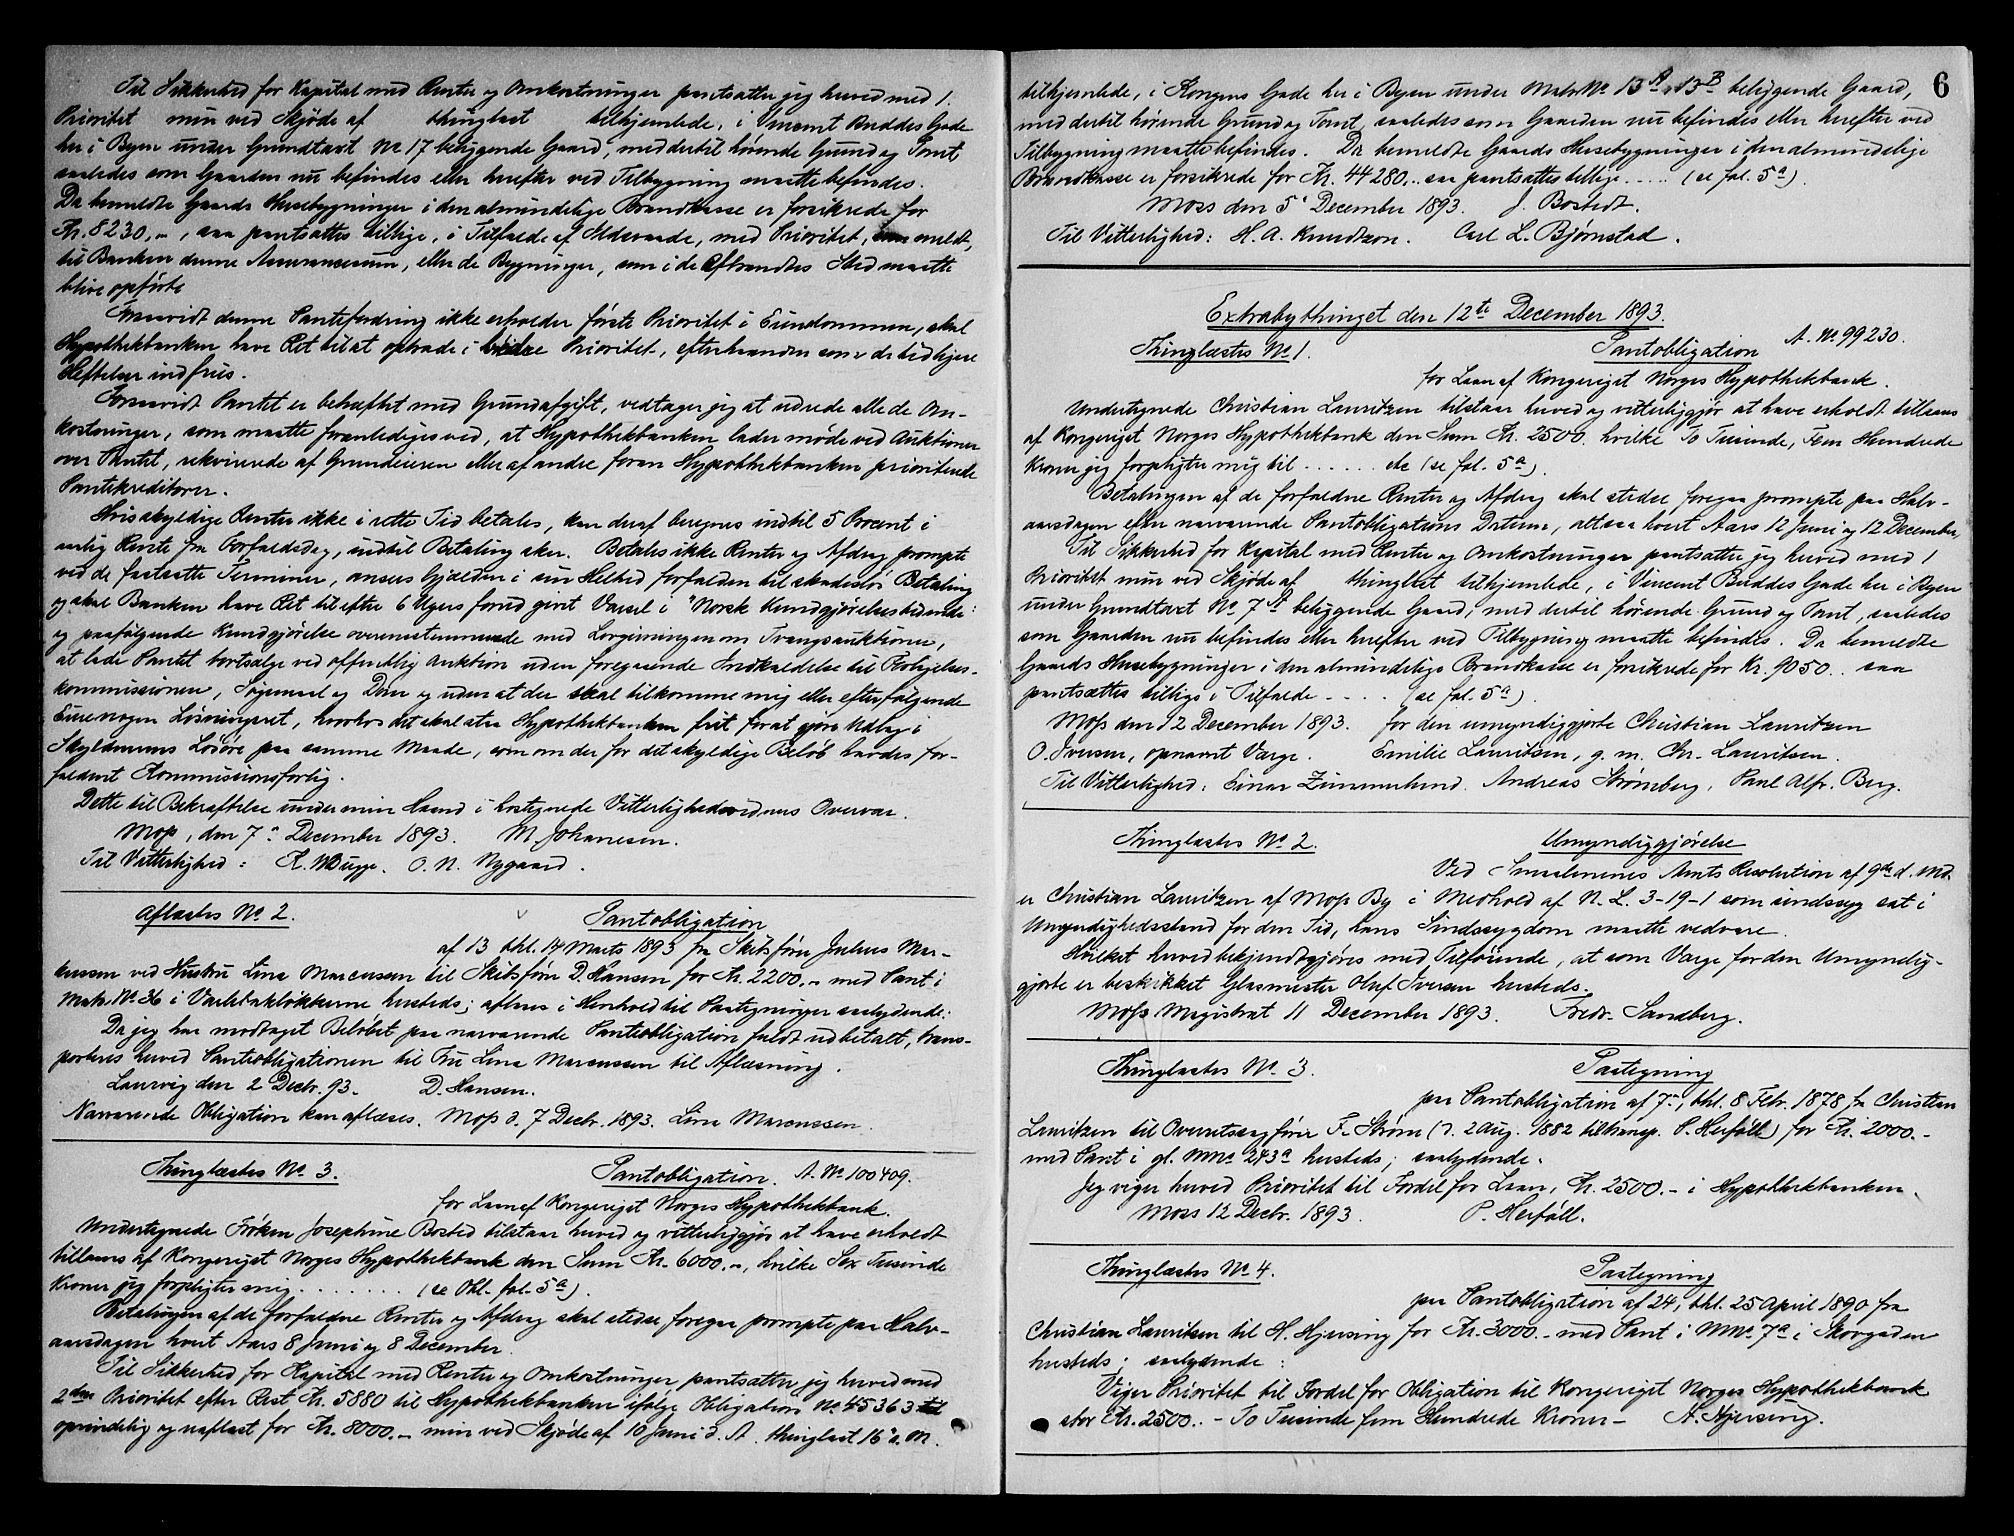 Til Sikkerhed for Kapital med Renter og Omkostninger pantsætter jeg herved med 1.
Prioritet min ved Skjøde af thinglæst tilhjemlede, i Vincent Buddes Gade
her i Byen under Grundtaxt No 17 beliggende Gaard, med dertil hørende Grund og Tomt
saaledes som Gaarden nu befindes eller herefter ved Tilbygning maatte befindes.
Da bemeldte Gaards Husebygninger i den almindelige Brandkasse er forsikrede for
Kr. 8230.-, saa pantsættes tillige, i Tilfælde af Ildsvaade, med Prioritet, som meldt,
til Banken denne Assurancesum, eller de Bygninger, som i de Afbrændtes Sted maatte
blive opførte
Forsaavidt denne Pantefordring ikke erholder første Prioritet i Eiendommen, skal
Hypothekbanken have Ret til at optræde i bedre Prioritet, efterhaanden som de tidligere
Heftelser indfries.
Forsaavidt Pantet er behæftet med Grundafgift, vedtager jeg at udrede alle de Om-
kostninger, som maatte foranlediges ved, at Hypothekbanken lader møde ved Auktioner
over Pantet, rekvirerede af Grundeieren eller af andre foran Hypothekbanken prioriterede
Pantekreditorer.
Hvis skyldige Renter ikke i rette Tid betales, kan deraf beregnes indtil 5 Procent i
aarlig Rente fra Forfaldsdag, indtil Betaling sker. Betales ikke Renter og Afdrag prompte
ved de fastsatte Terminer, ansees Gjælden i sin Helhed forfalden til skadesløs Betaling
og skal Banken have Ret til efter 6 Ugers forud givet Varsel i "Norsk Kundgjørelsestidende"
og paafølgende Kundgjørelse overensstemmende med Lovgivningen om Tvangsauktioner,
at lade Pantet bortsælge ved offentlig Auktion uden foregaaende Indkaldelse til Forligelses-
kommissionen, Søgsmaal og Dom og uden at der skal tilkomme mig eller efterfølgende
Eiere nogen Løsningsret, hvorhos det skal staa Hypothekbanken frit for at gjøre Udlæg i
Skyldnerens Løsøre paa samme Maade, som om der for det skyldige Beløb havdes for-
faldent Kommissionsforlig.
Dette til Bekræftelse under min Haand i hostegnede Vitterlighedsvidners Overvær.
Moss, den 7' December 1893. M. Johanesen.
Til Vitterlighed: K. W Bugge. O. N. Nygaard.
Aflæstes No 2. Pantobligation
af 13 thl. 14 Marts 1893 fra Skibsfører Julius Mar-
kussen ved Hustru Lina Marcussen til Skibsfører D. Hansen for Kr. 2200.- med Pant i
Matr. No 36 i Varlebakløkkerne husteds; aflæses i Henhold til Paategninger saalydende:
Da jeg har modtaget Beløbet paa nærværende Pantobligation fuldt udbetalt, trans-
porteres herved Pantobligationen til Fru Lina Marcussen til Aflæsning.
Laurvig den 2 Decbr. 93. D. Hansen.
Nærværende Obligation kan aflæses. Moss d. 7 Decbr. 1893. Lina Marcussen.
Thinglæstes No 3. Pantobligation. A. No 100409.
for Laan af Kongeriget Norges Hypothekbank.
Undertegnede Frøken Josephine Bosted tilstaar herved og vitterliggjør at have erholdt
tillaans af Kongeriget Norges Hypothekbank den Sum Kr. 6000.-, hvilke Sex Tusinde
Kroner jeg forpligter mig . . . . . . . (se Obl. fol. 5a).
Betalingen af de forfaldne Renter og Afdrag skal stedse foregaa prompte paa Halv-
aarsdagen hvert Aars 8 Juni og 8 December.
Til Sikkerhed for Kapital med Renter og Omkostninger pantsætter jeg herved med
2den Prioritet efter Rest Kr. 5880 til Hypothekbanken ifølge Obligation No 45363 til
oprindelig og uaflæst for Kr. 8000.- min ved Skjøde af 10 Juni d. A. thinglæst 16' s. M.
6
tilhjemlede, i Kongens Gade her i Byen under Matr. No 13A & 13B beliggende Gaard,
med dertil hørende Grund og Tomt, saaledes som Gaarden nu befindes eller herefter ved
Tilbygning maatte befindes. Da bemeldte Gaards Husebygninger i den almindelige
Brandkasse er forsikrede for Kr. 44280.. saa pantsættes tillige . . . . (se fol. 5a).
Moss den 5' December 1893. J. Bostedt.
Til Vitterlighed: H. A. Knudtzon. Carl L. Bjørnstad.
Extrabythinget den 12te December 1893.
Thinglæstes No 1. Pantobligation A. No 99230.
for Laan af Kongeriget Norges Hypothekbank.
Undertegnede Christian Lauritzen tilstaar herved og vitterliggjør at have erholdt tillaans
af Kongeriget Norges Hypothekbank den Sum Kr. 2500. hvilke To Tusinde, Fem Hundrede
Kroner jeg forpligter mig til . . . . . . etc (se fol. 5a).
Betalingen af de forfaldne Renter og Afdrag skal stedse foregaa prompte paa Halv-
aarsdagen efter nærværende Pantobligations Datum, altsaa hvert Aars 12 Juni og 12 December,
Til Sikkerhed for Kapital med Renter og Omkostninger pantsætter jeg herved med 1
Prioritet min ved Skjøde af thinglæst tilhjemlede, i Vincent Buddes Gade her i Byen
under Grundtaxt No 7A beliggende Gaard, med dertil hørende Grund og Tomt, saaledes
som Gaarden nu befindes eller herefter ved Tilbygning maatte befindes. Da bemeldte
Gaards Husebygninger i den almindelige Brandkasse er forsikrede for Kr. 9050.. saa
pantsættes tillige i Tilfælde - . . . . (se fol. 5a)
Moss den 12 December 1893. for den umyndiggjorte Christian Lauritzen
O. Iversen, opnævnt Værge. Emilie Lauritsen, g. m. Chr. Lauritsen.
Til Vitterlighed: Einar Zimmerlund. Andreas Strømberg. Paul Alfr. Berg.
Thinglæstes No 2. Umyndiggjørelse
Ved Smaalenenes Amts Resolution af 9de d. Md.
er Christian Lauritzen af Moss By i Medhold af N. L. 3-19-1 som sindssyg sat i
Umyndighedsstand for den Tid, hans Sindssygdom maatte vedvare.
Hvilket herved bekjendtgjøres med Tilføiende, at som Værge for den Umyndig-
gjorte er beskikket Glasmester Oluf Iversen husteds.
Moss Magistrat 11 December 1893. Fredr. Sandberg.
Thinglæstes No 3. Paategning
paa Pantobligation af 7', thl. 8 Febr. 1878 fra Christian
Lauritzen til Overretssagfører F. Strøm (d. 2 Aug. 1882 tiltransp. P. Herføll) for Kr. 2000.-
med Pant i gl. MNo 243a husteds; saalydende.
Jeg viger herved Prioritet til Fordel for Laan, Kr. 2500.- i Hypothekbanken.
Moss 12 Decbr. 1893. P. Herføll.
Thinglæstes No 4. Paategning
paa Pantobligation af 24, thl. 25 April 1890 fra
Christian Lauritsen til H. Hjersing for Kr. 3000.- med Pant i MNo 7a i Skovgaden
husteds; saalydende:
Viger Prioritet til Fordel for Obligation til Kongeriget Norges Hypothekbank
stor Kr. 2500.. - To Tusinde fem Hundrede Kroner - H. Hjersing.